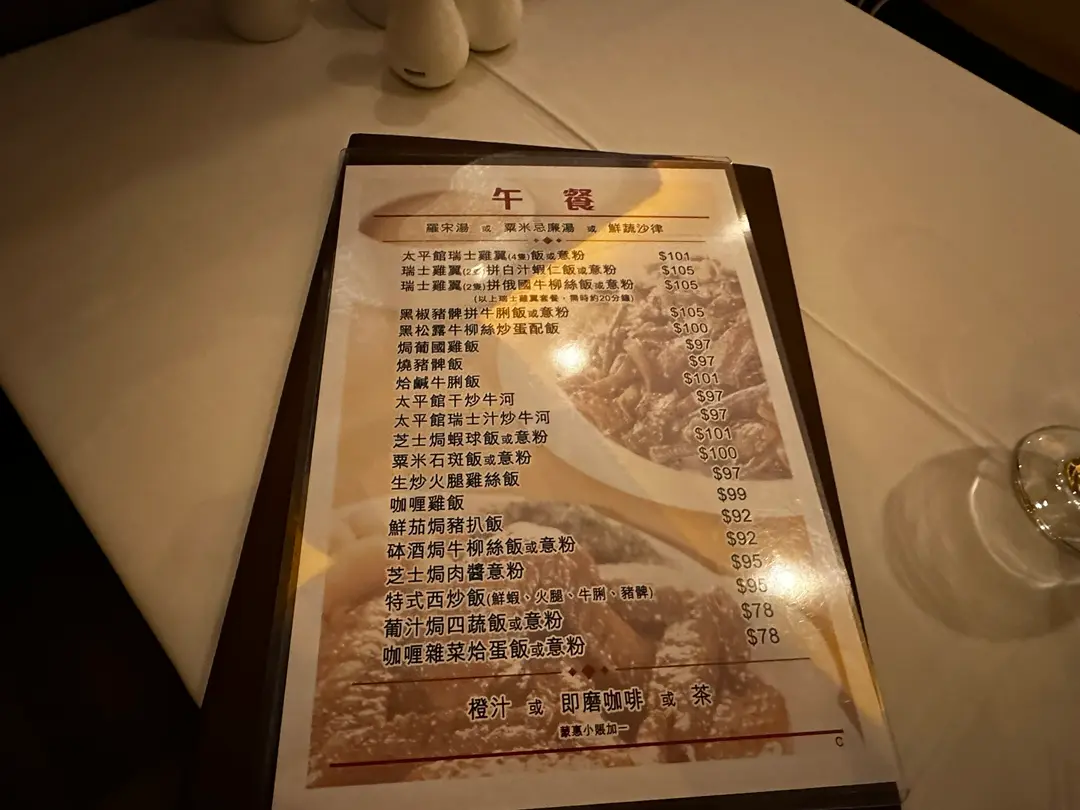 午餐
羅宋湯 或 粟米忌廉湯 或 鮮蔬沙律
太平館瑞士雞翼(4隻)飯或意粉 $101
瑞士雞翼(2隻)拼白汁蝦仁飯或意粉 $105
瑞士雞翼(2隻)拼俄國牛柳絲飯或意粉 $105
(以上瑞士雞翼套餐，需時約20分鐘)
黑椒豬髀拼牛脷飯或意粉 $105
黑松露牛柳絲炒蛋配飯 $100
焗葡國雞飯 $97
燒豬髀飯 $97
烚鹹牛脷飯 $101
太平館干炒牛河 $97
太平館瑞士汁炒牛河 $97
芝士焗蝦球飯或意粉 $101
粟米石斑飯或意粉 $100
生炒火腿雞絲飯 $97
咖喱雞飯 $99
鮮茄焗豬扒飯 $92
砵酒焗牛柳絲飯或意粉 $92
芝士焗肉醬意粉 $95
特式西炒飯(鮮蝦、火腿、牛脷、豬髀) $95
葡汁焗四蔬飯或意粉 $78
咖喱雜菜烚蛋飯或意粉 $78
橙汁 或 即磨咖啡 或 茶
蒙惠小賬加一
C